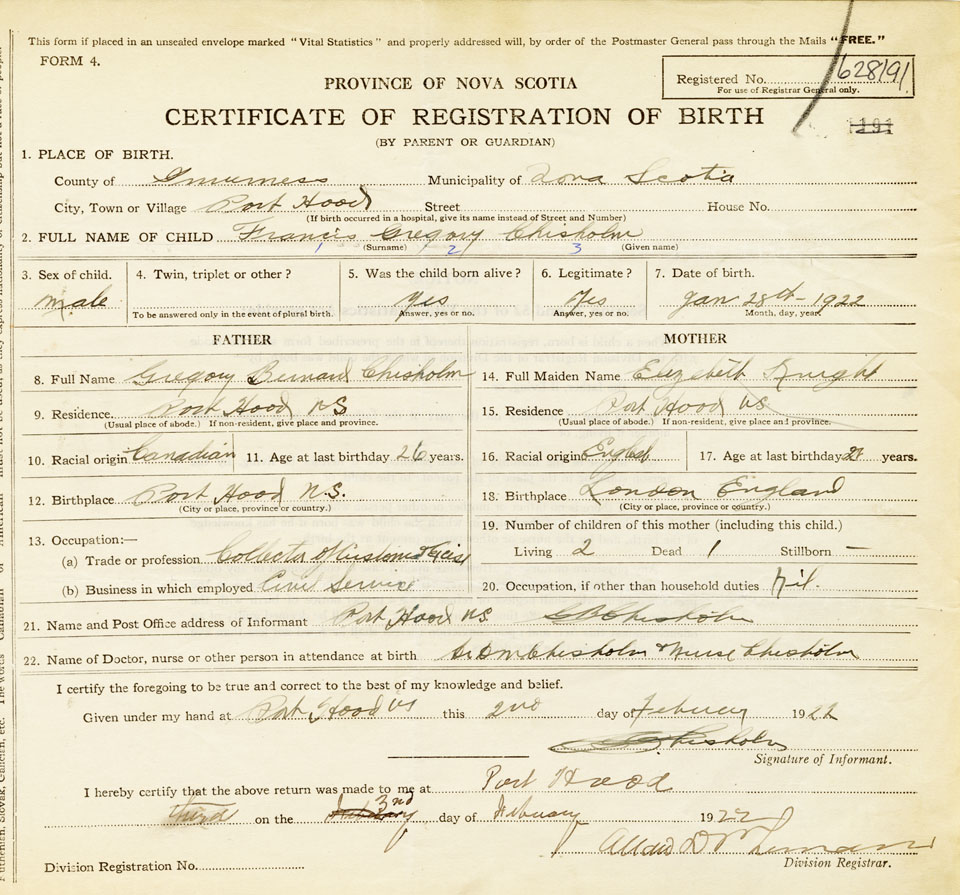 This form if placed in an unsealed envelope marked "Vital Statistics" and properly addressed will, by order of the Postmaster General pass through the Mails "FREE."
FORM 4.
Registered No. 628191
For use of Registrar General only.
PROVINCE OF NOVA SCOTIA
CERTIFICATE OF REGISTRATION OF BIRTH
(BY PARENT OR GUARDIAN)
1. PLACE OF BIRTH.
County of Inverness Municipality of Nova Scotia
City, Town or Village Port Hood Street House No.
(If birth occurred in a hospital, give its name instead of Street and Number)
2. FULL NAME OF CHILD Francis Gregory Chisholm
1 (Surname) 2 3 (Given name)
3. Sex of child. 4. Twin, triplet or other? 5. Was the child born alive? 6. Legitimate? 7. Date of birth.
male Yes Yes Jan 28th - 1922
To be answered only in the event of plural birth. Answer, yes or no. Answer, yes or no. Month, day, year.
FATHER MOTHER
8. Full Name Gregory Bernard Chisholm 14. Full Maiden Name Elizabeth Knight
9. Residence. Port Hood NS 15. Residence Port Hood NS
(Usual place of abode.) If non-resident, give place and province. (Usual place of abode.) If non-resident, give place and province.
10. Racial origin Canadian 11. Age at last birthday 26 years. 16. Racial origin English 17. Age at last birthday years.
12. Birthplace Port Hood N.S. 18. Birthplace London England
(City or place, province or country.) (City or place, province or country.)
13. Occupation:— 19. Number of children of this mother (including this child.)
(a) Trade or profession Collector of Customs & Excise Living 2 Dead 1 Stillborn —
(b) Business in which employed Civil Service 20. Occupation, if other than household duties Nil.
21. Name and Post Office address of Informant Port Hood NS G B Chisholm
22. Name of Doctor, nurse or other person in attendance at birth Chisholm & Nurse Chisholm
I certify the foregoing to be true and correct to the best of my knowledge and belief.
Given under my hand at Port Hood NS this 2nd day of February 1922
Chisholm
Signature of Informant.
I hereby certify that the above return was made to me at Port Hood
third on the 3rd day of February 1922
Division Registration No. Division Registrar.